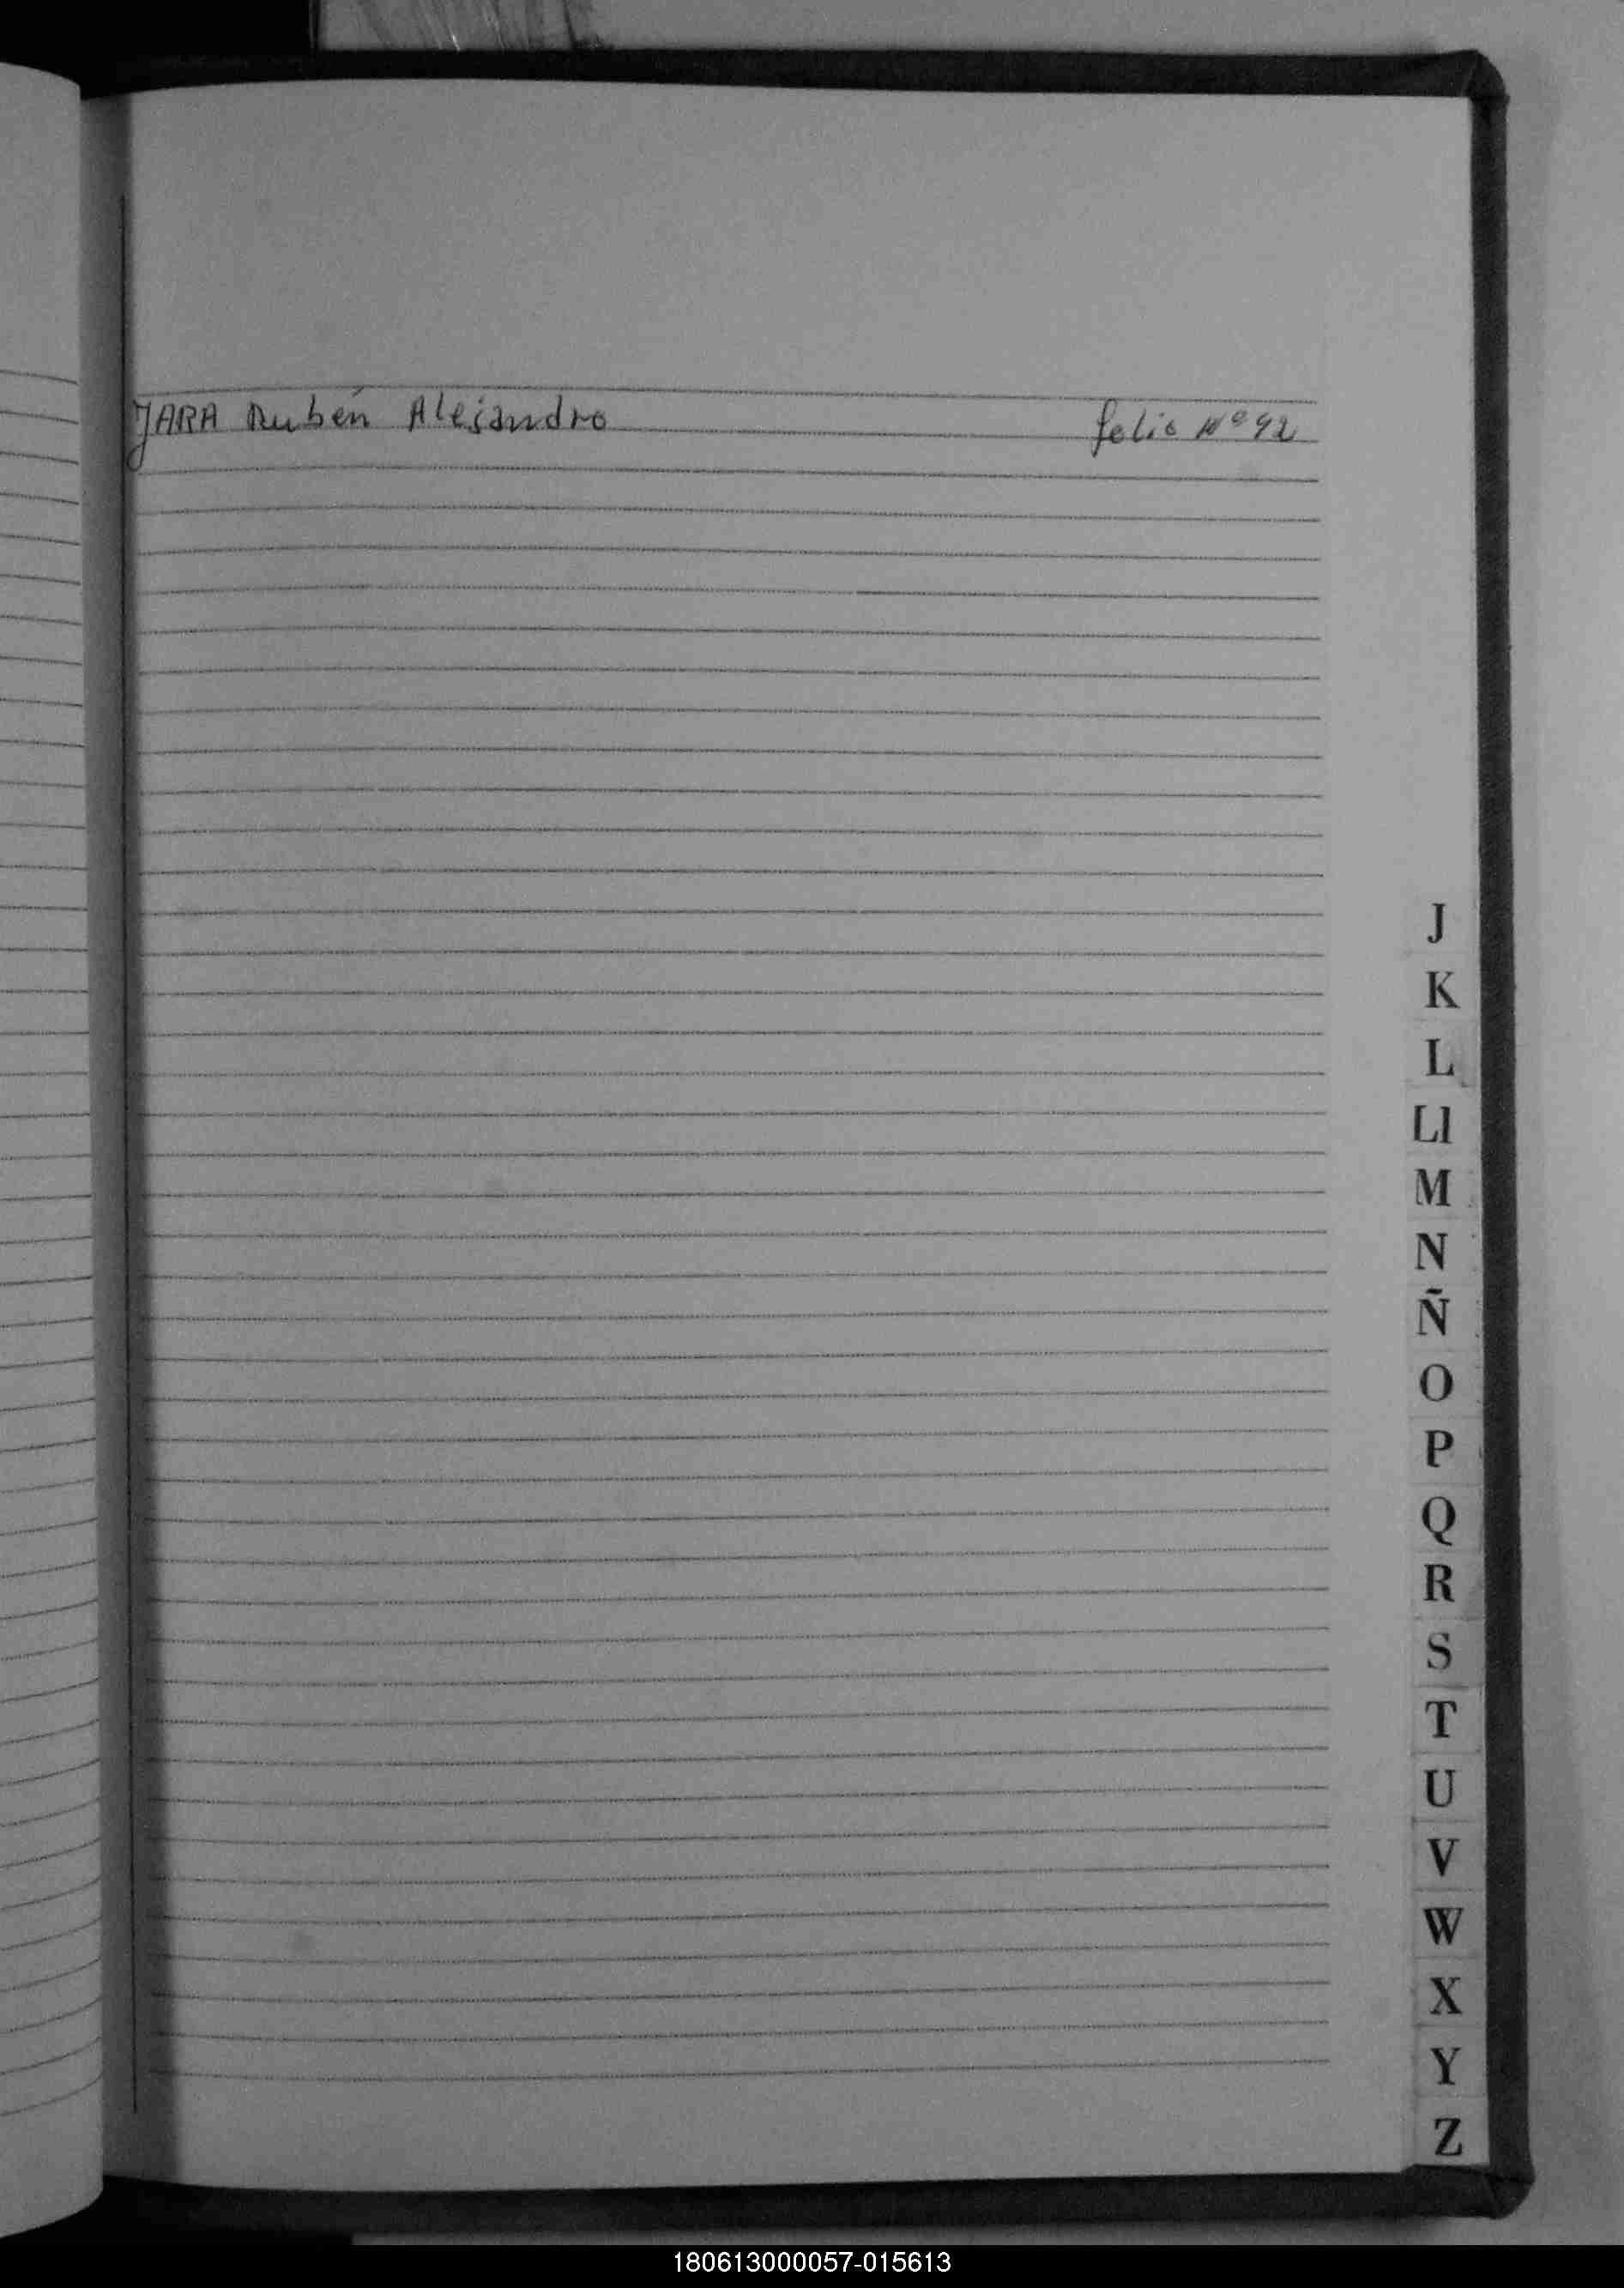 JARA Rubén Alejandro folio Nº 92
J
K
L
Ll
M
N
Ñ
O
P
Q
R
S
T
U
V
W
X
Y
Z
180613000057-015613